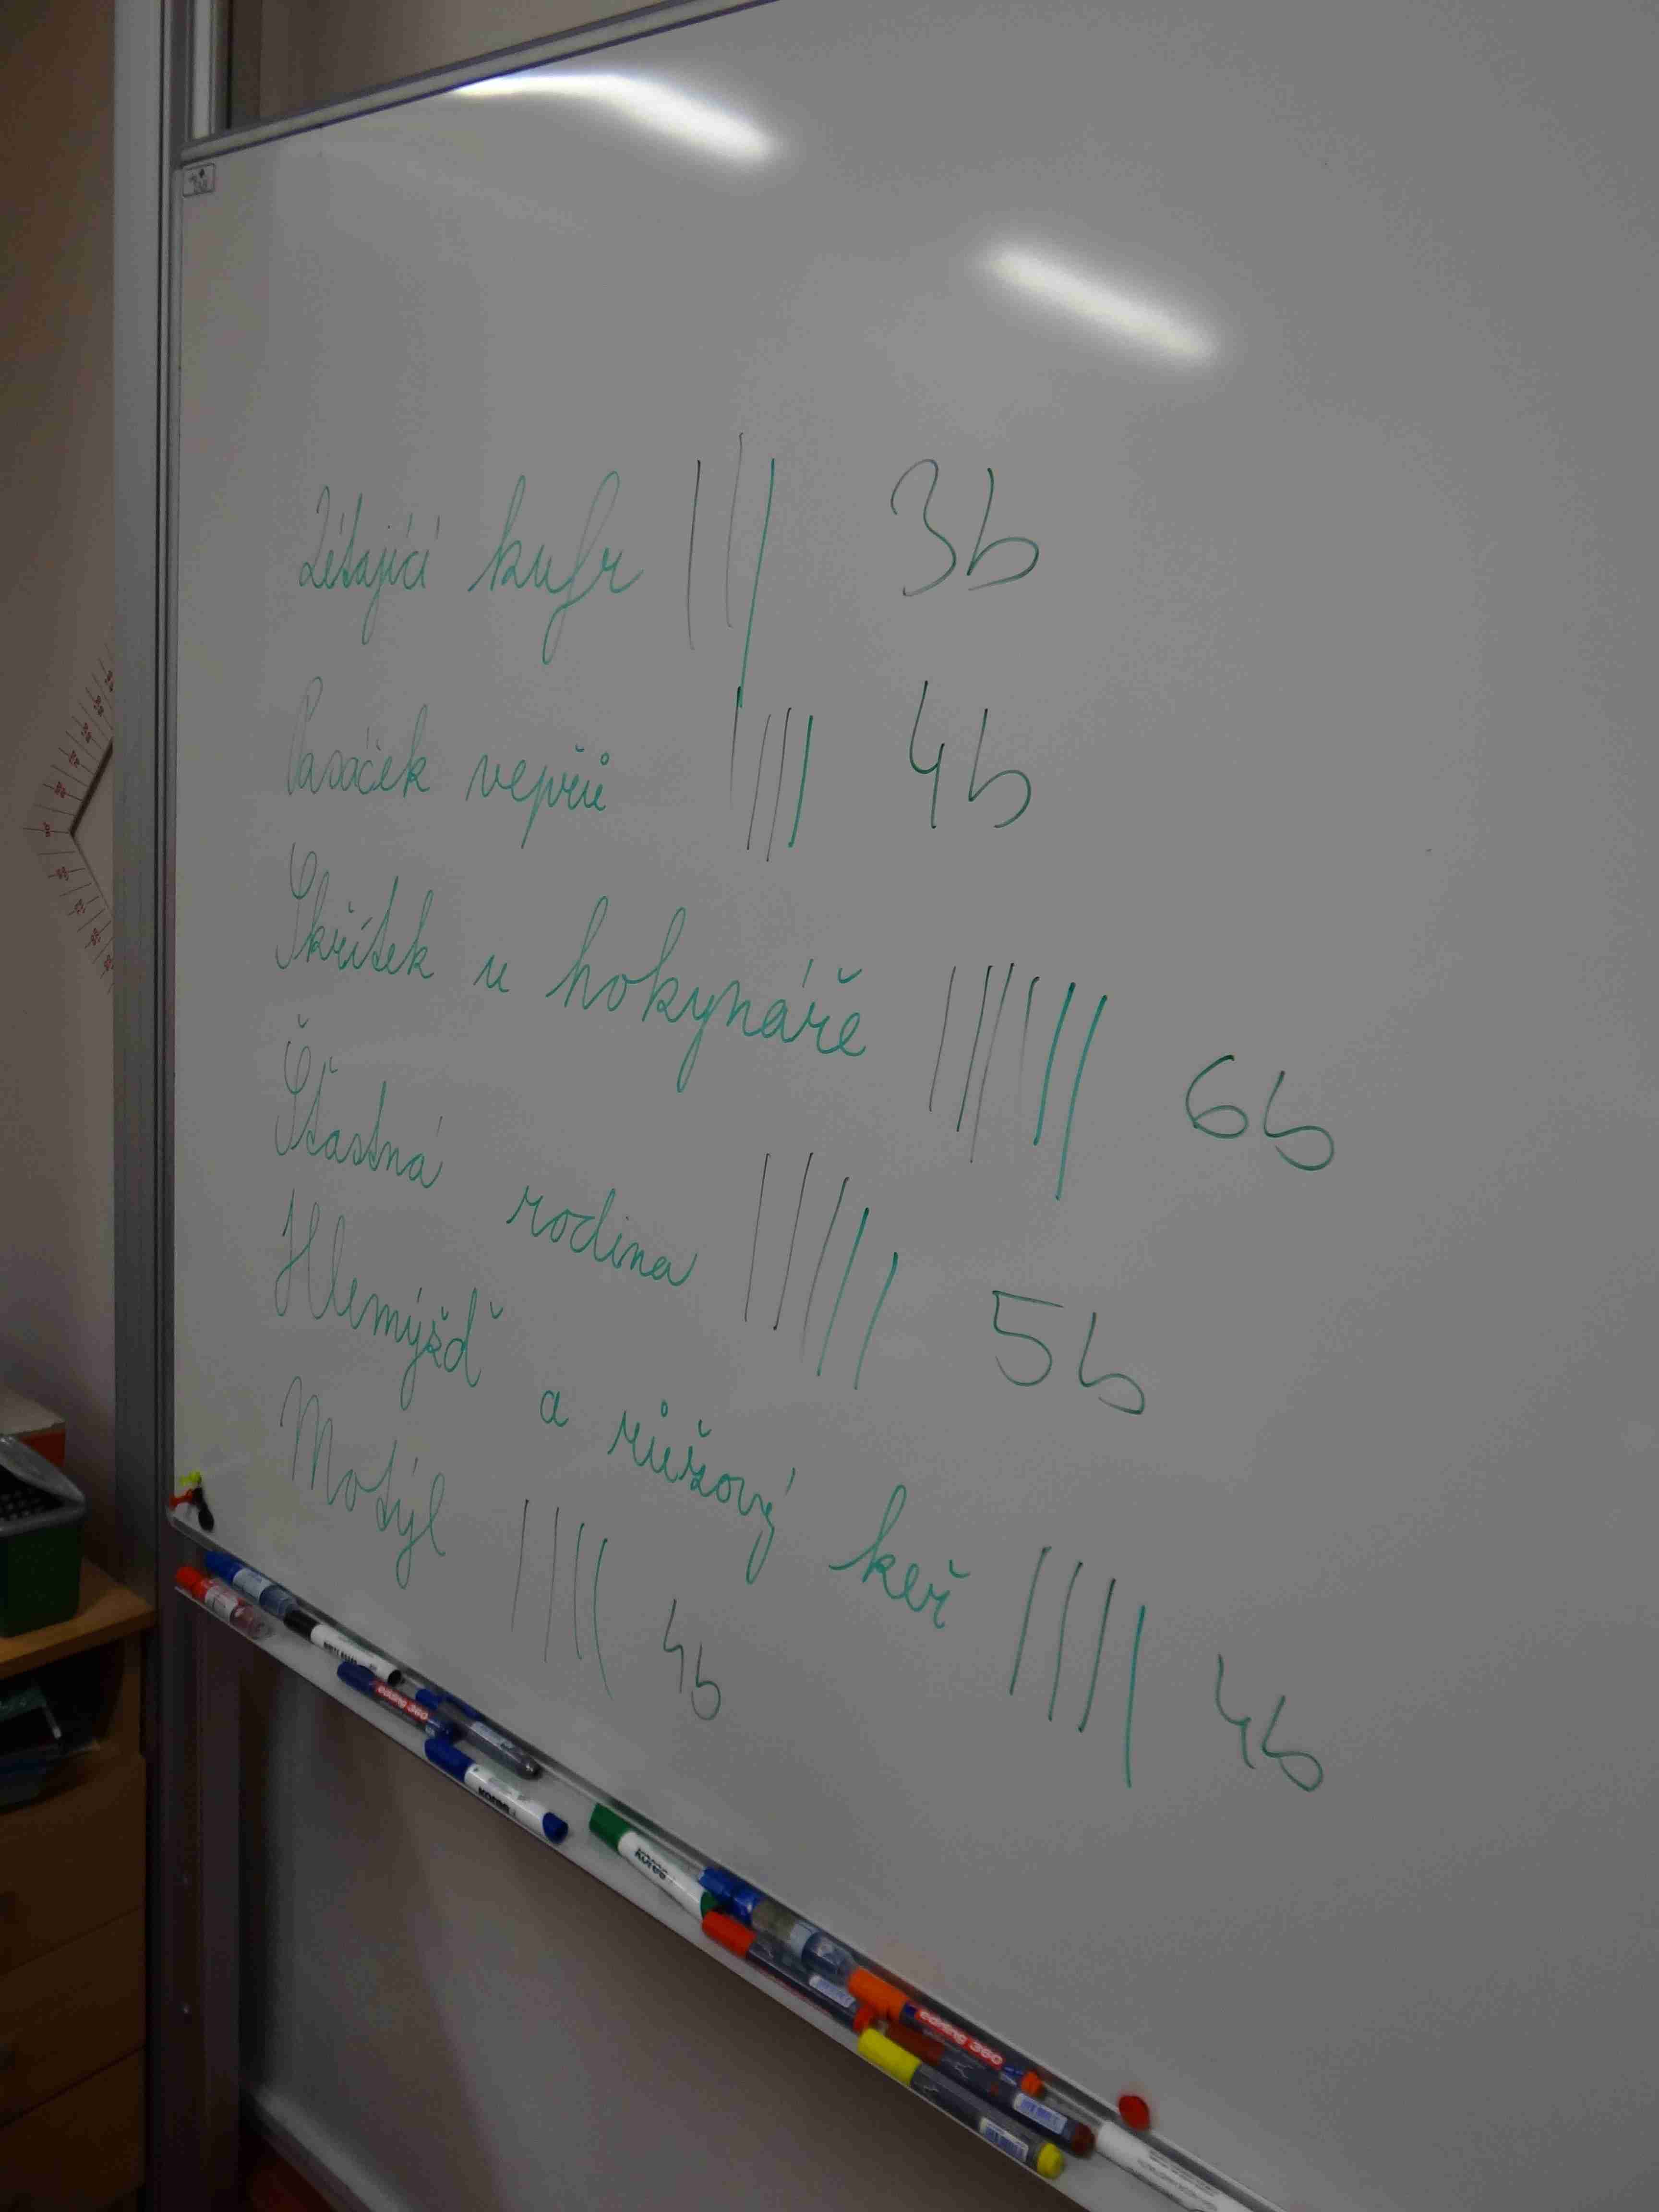 Létající kufr ||| 3b
Pasáček vepřů |||| 4b
Skřítek u hokynáře |||||| 6b
Šťastná rodina ||||| 5b
Hlemýžď a růžový keř |||| 4b
Motýl |||| 4b
edding 360
kores
kores
edding 360